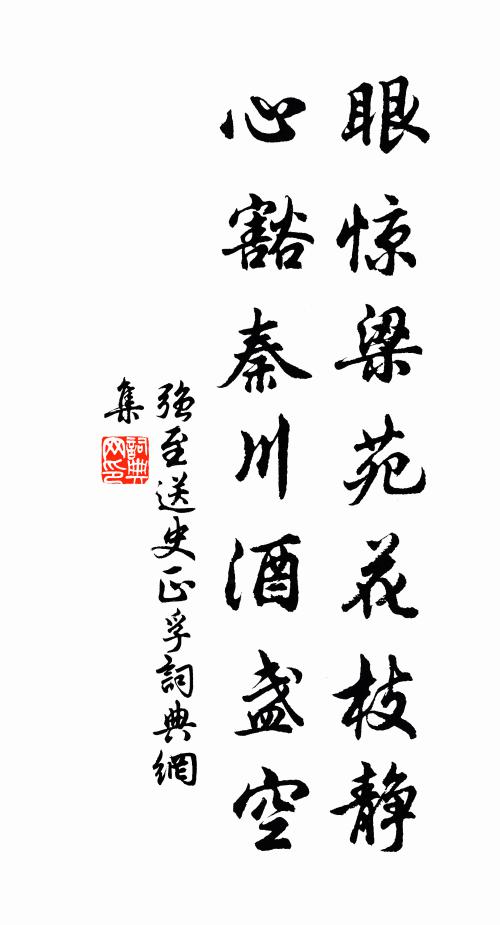 眼惊梁苑花枝静
心豁秦川酒盏空
强至送史正孚詞典網
集
詞典網印